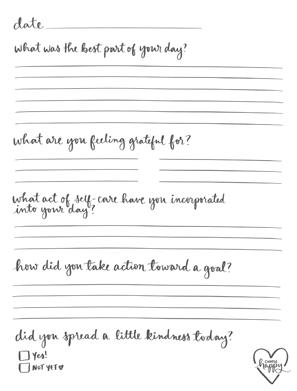 date
what was the best part of your day?
what are you feeling grateful for?
what act of self-care have you incorporated
into your day?
how did you take action toward a goal?
did you spread a little kindness today?
Yes!
Not yet
happy